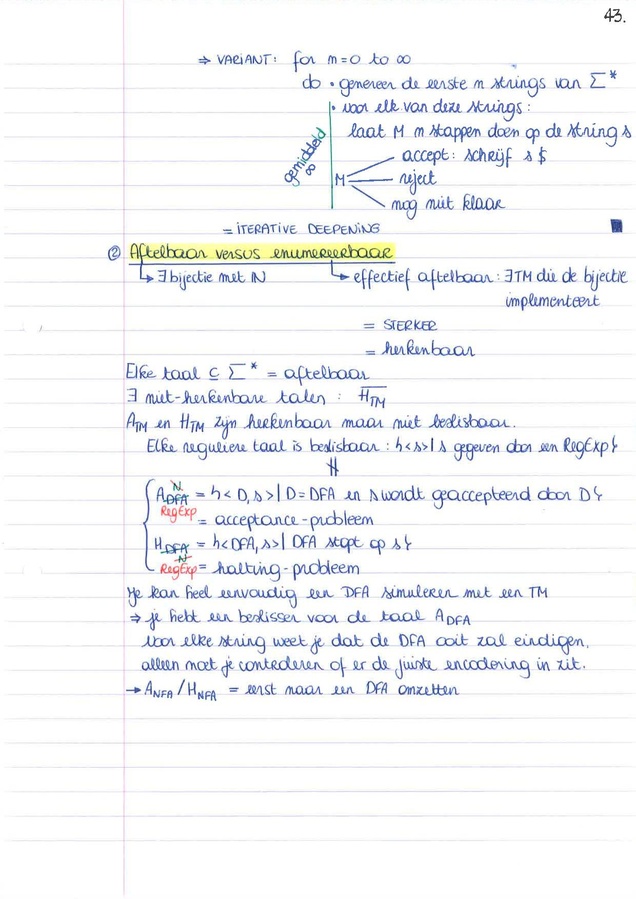 43.
⇒ VARIANT: for n=0 to ∞
do • genereer de eerste n strings van Σ*
• voor elk van deze strings:
laat M n stappen doen op de string s
gemiddeld ∞
accept: schrijf s $
M reject
nog niet klaar
= ITERATIVE DEEPENING
② Aftelbaar versus enumereerbaar
↳ ∃ bijectie met ℕ ↳ effectief aftelbaar: ∃TM die de bijectie
implementeert
= STERKER
= herkenbaar
Elke taal ⊆ Σ* = aftelbaar
∃ niet-herkenbare talen: H̅T̅M̅
ATM en HTM zijn herkenbaar maar niet beslisbaar.
Elke reguliere taal is beslisbaar: {<s>| s gegeven door een RegExp}
N
ADFA = {<D,s>| D=DFA en s wordt geaccepteerd door D}
RegExp = acceptance-probleem
HDFA = {<DFA,s>| DFA stopt op s}
N
RegExp = halting-probleem
Je kan heel eenvoudig een DFA simuleren met een TM
⇒ je hebt een beslisser voor de taal ADFA
Voor elke string weet je dat de DFA ooit zal eindigen,
alleen moet je controleren of er de juiste encodering in zit.
→ ANFA/HNFA = eerst naar een DFA omzetten